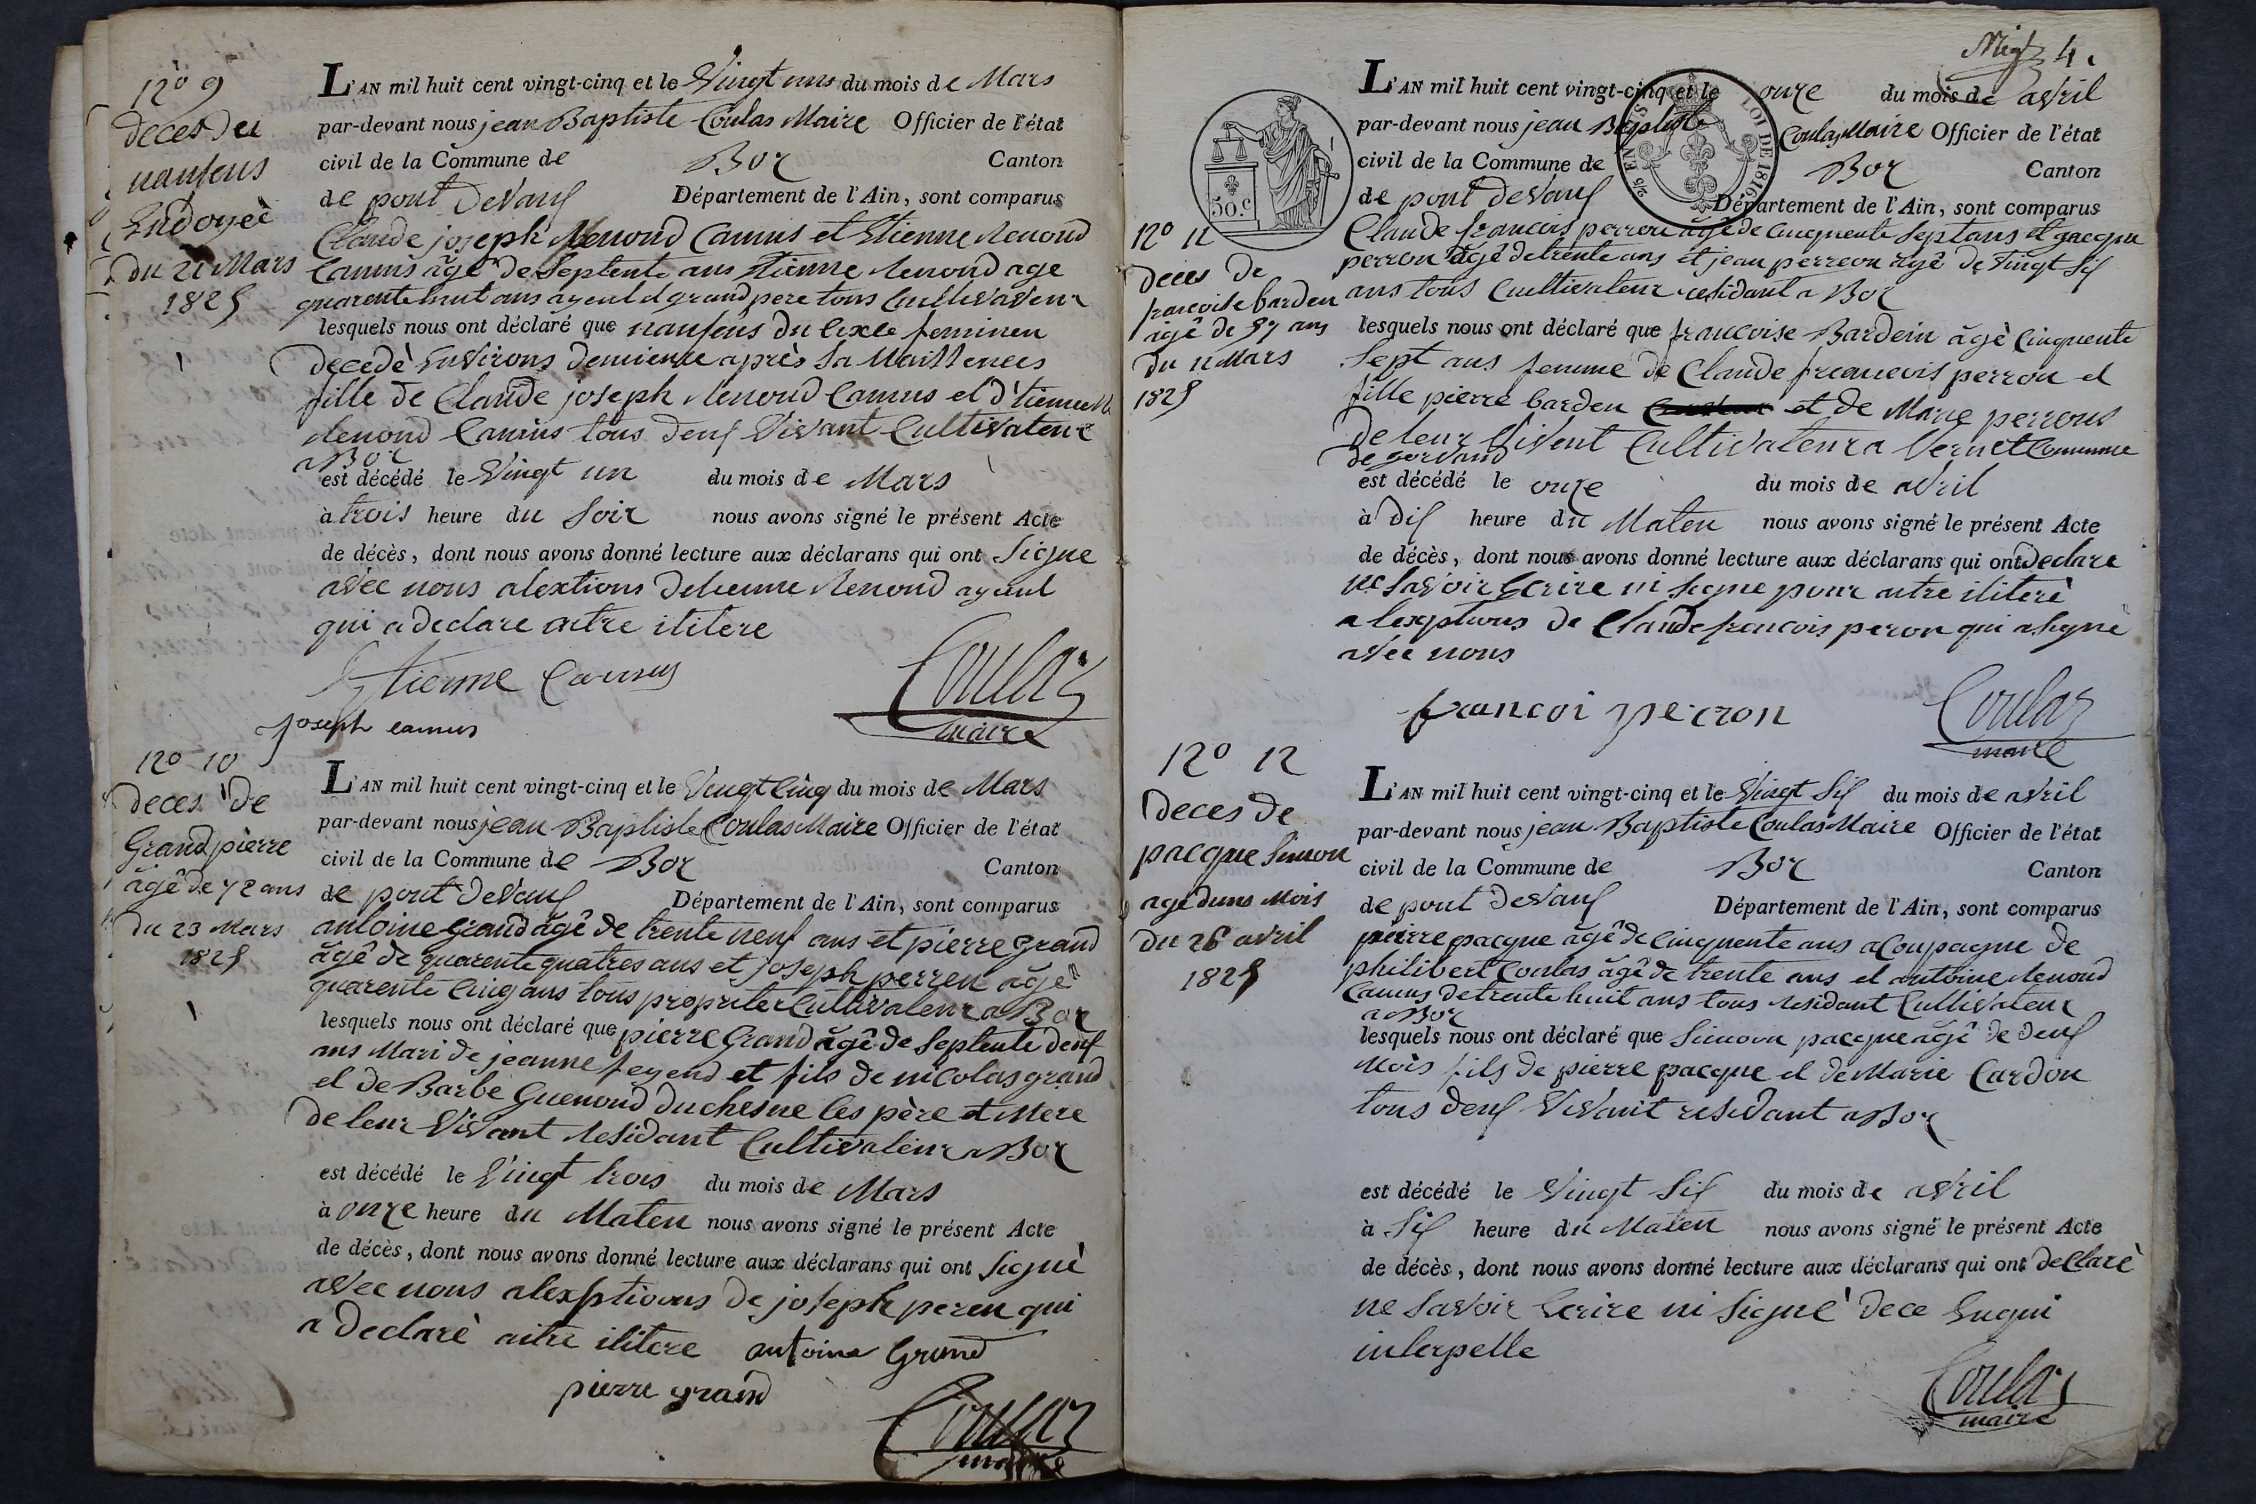 N.o 9
deces du
nanfens
Endoyeè
du 21 Mars
1825
L'AN mil huit cent vingt-cinq et le Vingt uns du mois de Mars
par-devant nous jean Baptiste Coulas Maire Officier de l'état
civil de la Commune de Boz Canton
de pont Devaux Département de l'Ain, sont comparus
Claude joseph Renoud Camus et Etienne Renoud
Camus âgé de Septente ans Etienne Renoud age
quarente huit ans ayeul et grand pere tous Cultivateur
lesquels nous ont déclaré que nanfens du Cexe feminen
decedè Environs demieure après Sa Naissences
fille de Claude joseph Renoud Camus et d'tienne
Renoud Camus tous deux Vivant Cultivateur
a Boz
est décédé le Vingt un du mois de Mars
à trois heure du Soir nous avons signé le présent Acte
de décès, dont nous avons donné lecture aux déclarans qui ont Signe
avec nous alextions detienne Renoud ayeul
qui a declare aitre ilitere
Etienne Camus
joseph camus
Coulas
maire
N.o 10
deces de
Grand pierre
âgé de 72 ans
du 23 Mars
1825
L'AN mil huit cent vingt-cinq et le Vingt Cinq du mois de Mars
par-devant nous jean Baptiste Coulas Maire Officier de l'état
civil de la Commune de Boz Canton
de pont Devaux Département de l'Ain, sont comparus
antoine Grand âgé de trente neuf ans et pierre grand
âgé de quarente quatres ans et joseph perren âgé
quarente Cinq ans tous propriter Cultivateur a Boz
lesquels nous ont déclaré que pierre Grand âgé de Septente deux
ans Mari de jeanne feyend et fils de nicolas grand
et de Barbe Guenoud duchesne les père et Mere
de leur Vivant Residant Cultivateur a Boz
est décédé le Vingt trois du mois de Mars
à onze heure du Maten nous avons signé le présent Acte
de décès, dont nous avons donné lecture aux déclarans qui ont Signè
avec nous alexptions de joseph peren qui
a declarè aitre ilitere antoine Grand
pierre grand
Coulas
maire
4.
50.c
LOI DE 1816
N.o 11
deces de
francoise barden
âgé de 57 ans
du 11 Mars
1825
L'AN mil huit cent vingt-cinq et le onze du mois de avril
par-devant nous jean Baptiste Coulas Maire Officier de l'état
civil de la Commune de Boz Canton
de pont Devaux Département de l'Ain, sont comparus
Claude francois perron âgé de Cinquente Sept ans et pacque
perron âgé de trente ans et jean perreon âgé de Vingt Six
ans tous Cultivateur residant a Boz
lesquels nous ont déclaré que francoise Bardein âgè Cinquente
Sept ans femme de Claude francois perron et
fille pierre barden et de Marie perrons
de leur Vivent Cultivateur a Vernet Commune
de gorvand
est décédé le onze du mois de avril
à dix heure du Maten nous avons signé le présent Acte
de décès, dont nous avons donné lecture aux déclarans qui ont declare
ne Savoir Ecrire ni Signe pour aitre ilitere
alexptions de Claude francois peron qui a Signè
avec nous
francoi perron
Coulas
maire
N.o 12
deces de
pacque Simon
age duns Mois
du 26 avril
1825
L'AN mil huit cent vingt-cinq et le Vingt Six du mois de avril
par-devant nous jean Baptiste Coulas Maire Officier de l'état
civil de la Commune de Boz Canton
de pont Devaux Département de l'Ain, sont comparus
pierre pacque âgé de Cinquente ans aCoupagne de
philibert Coulas âgé de trente ans et antoine Renoud
Camus de trente huit ans tous Residant Cultivateur
a Boz
lesquels nous ont déclaré que Simon pacque âgé de deux
Mois fils de pierre pacque et de Marie Cardon
tous deux Vivant residant a Boz
est décédé le Vingt Six du mois de avril
à Six heure du Maten nous avons signé le présent Acte
de décès, dont nous avons donné lecture aux déclarans qui ont declarè
ne Savoir Ecrire ni Signè dece Enqui
interpelle
Coulas
maire